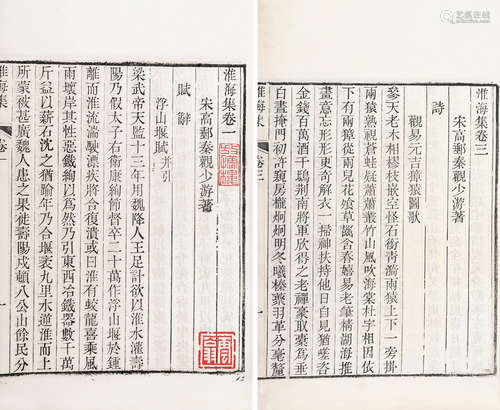 淮海集卷三
宋高郵秦觀少游著
詩
觀易元吉獐猿圖歌
參天老木相樛枝嵌空怪石銜青漪兩猿上下一旁掛
兩猿熟視蒼蛙疑蕭蕭叢竹山風吹海棠杜宇相因依
下有兩獐從兩兒花飧草齧含春嬉易老筆精湖海推
畫意忘形形更奇解衣一掃神扶持他日自見猶嗟咨
金錢百萬酒千鴟荊南將軍欣得之老禪豪取橐為垂
白晝掩門初許窺房櫳炯炯明冬曦榛羽革分毫釐
淮海集
卷三
一
淮海集卷一
宋高郵秦觀少游著
賦辭
浮山堰賦并引
梁武帝天監十三年用魏降人王足計欲以淮水灌壽
陽乃假太子右衛康絢節督卒二十萬作浮山堰於鍾
離而淮流湍駛漂疾將合復潰或曰淮有蛟龍喜乘風
雨壞岸其性惡鐵絢以為然乃引東西冶鐵器數千萬
斤益以薪石沈之猶踰年乃合堰袤九里水逆淮而上
所蒙被甚廣魏人患之果徙壽陽戍頓八公山餘民分
淮海集
卷一
一